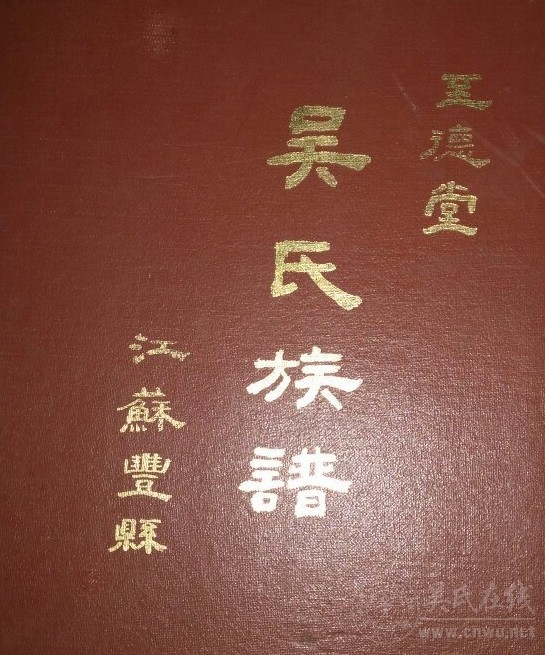 至德堂
吴氏族譜
江蘇豐縣
吴氏在线
www.cnwu.net